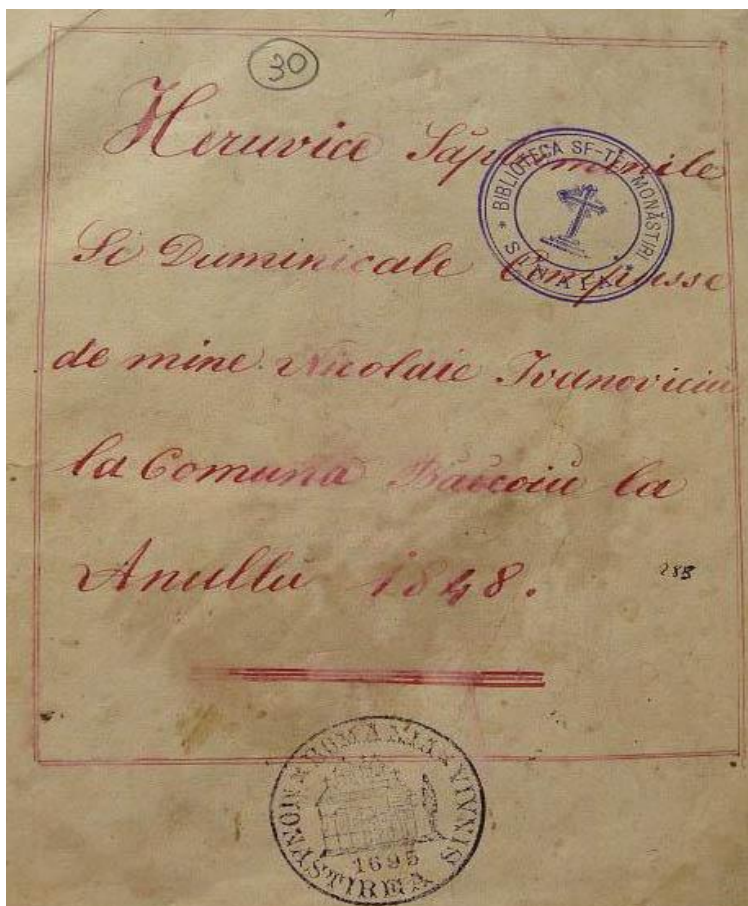 30
Heruvice Săptămînile
Si Duminicale Compusse
de mine Nicolaie Ivanoviciu
la Comuna Băicoiu la
Anullu 1848.
288
* BIBLIOTECA SF-TEI MONĂSTIRI *
SINAIA
ROMANIA * SINAIA
MONASTIREA
1695